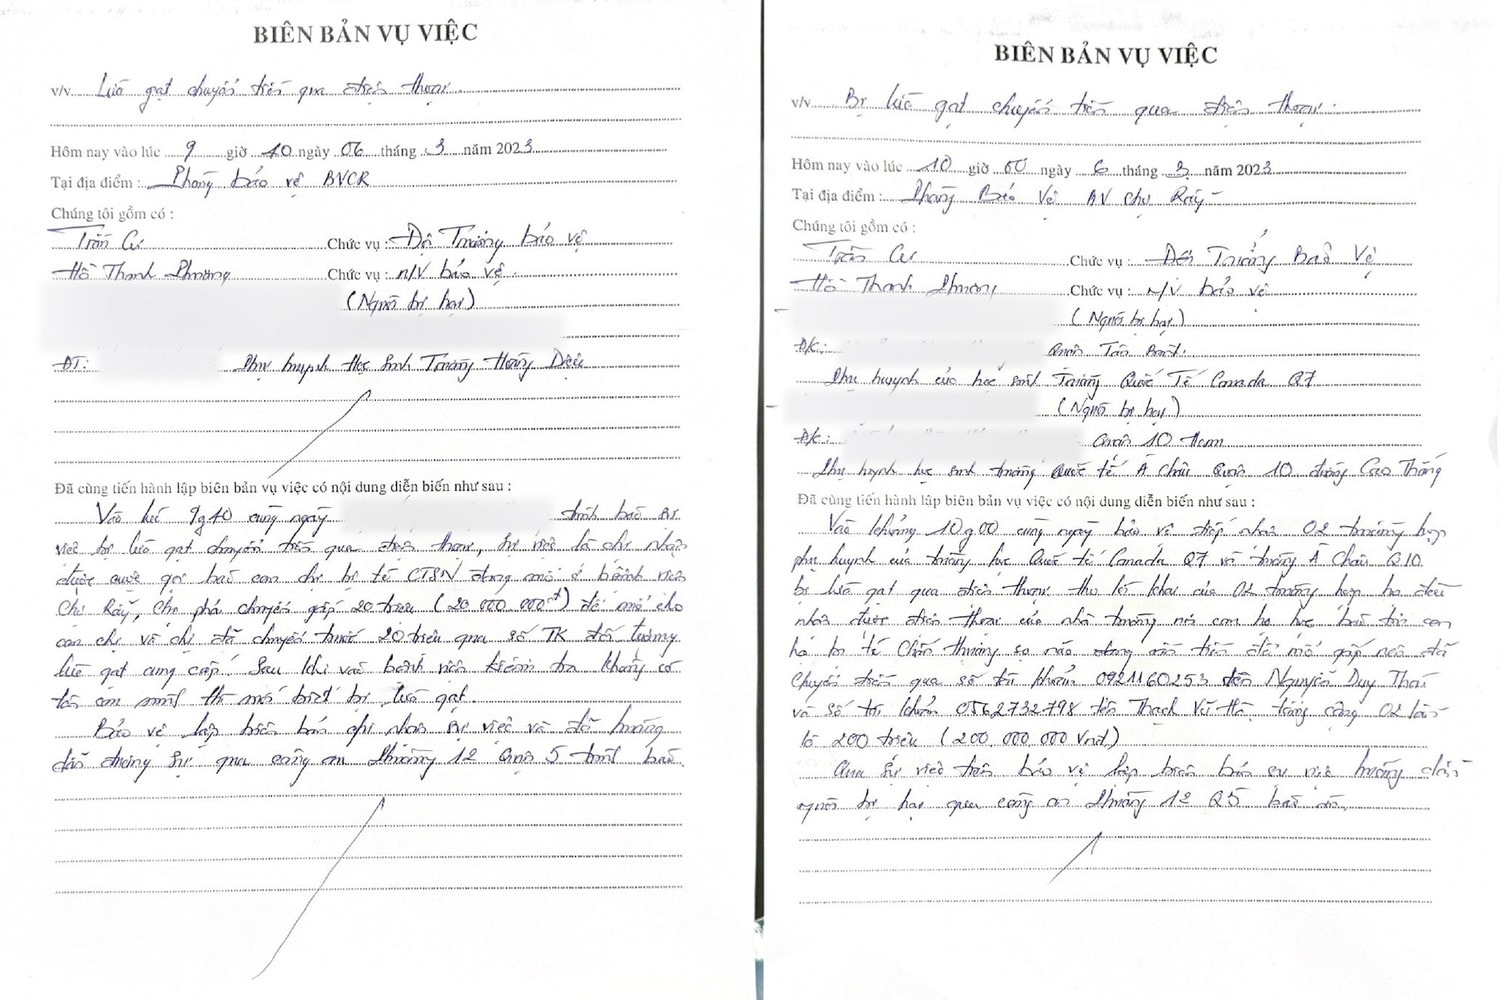 BIÊN BẢN VỤ VIỆC
v/v Lừa gạt chuyển tiền qua điện thoại.
Hôm nay vào lúc 9 giờ 40 ngày 06 tháng 3 năm 2023
Tại địa điểm : Phòng bảo vệ BVCR
Chúng tôi gồm có :
Trần Cư Chức vụ : Đội Trưởng bảo vệ
Hồ Thanh Phương Chức vụ : n/v bảo vệ.
(Người bị hại)
ĐT: Phụ huynh Học sinh Trường Hoàng Diệu
Đã cùng tiến hành lập biên bản vụ việc có nội dung diễn biến như sau :
Vào lúc 9g40 cùng ngày trình báo sự
việc bị lừa gạt chuyển tiền qua điện thoại, sự việc là chị nhận
được cuộc gọi báo con chị bị té CTSN đang mổ ở bệnh viện
Chợ Rẫy, cho phải chuyển gấp 20 triệu (20.000.000đ) để mổ cho
con chị và chị đã chuyển trước 20 triệu qua số TK đối tượng
lừa gạt cung cấp. Sau khi vào bệnh viện kiểm tra không có
tên con mình thì mới biết bị lừa gạt.
Bảo vệ lập biên bản ghi nhận sự việc và đã hướng
dẫn đương sự qua công an Phường 12 Quận 5 trình báo.
BIÊN BẢN VỤ VIỆC
v/v Bị lừa gạt chuyển tiền qua điện thoại.
Hôm nay vào lúc 10 giờ 00 ngày 6 tháng 3 năm 2023
Tại địa điểm : Phòng Bảo Vệ BV Chợ Rẫy
Chúng tôi gồm có :
Trần Cư Chức vụ : Đội Trưởng Bảo Vệ
Hồ Thanh Phương Chức vụ : n/v bảo vệ
(Người bị hại)
Đ/c: Quận Tân Bình.
Phụ huynh của học sinh Trường Quốc Tế Canada Q7
(Người bị hại)
Đ/c: Quận 10 Hcm
Phụ huynh học sinh trường Quốc tế Á Châu Quận 10 đường Cao Thắng
Đã cùng tiến hành lập biên bản vụ việc có nội dung diễn biến như sau :
Vào khoảng 10g00 cùng ngày bảo vệ tiếp nhận 02 trường hợp
phụ huynh của trường học Quốc tế Canada Q7 và trường Á Châu Q10
bị lừa gạt qua điện thoại theo lời khai của 02 trường hợp họ đều
nhận được điện thoại của nhà trường nói con họ học bài tin con
họ bị té Chấn thương sọ não đang cần tiền để mổ gấp nên đã
chuyển tiền qua số tài khoản 0921160253 tên Nguyễn Duy Thái
và số tài khoản 0562732798 tên Thạch Vũ Hà tổng cộng 02 lần
là 200 triệu (200.000.000 Vnđ)
Qua sự việc trên bảo vệ lập biên bản sự việc hướng dẫn
người bị hại qua công an Phường 12 Q5 báo án.